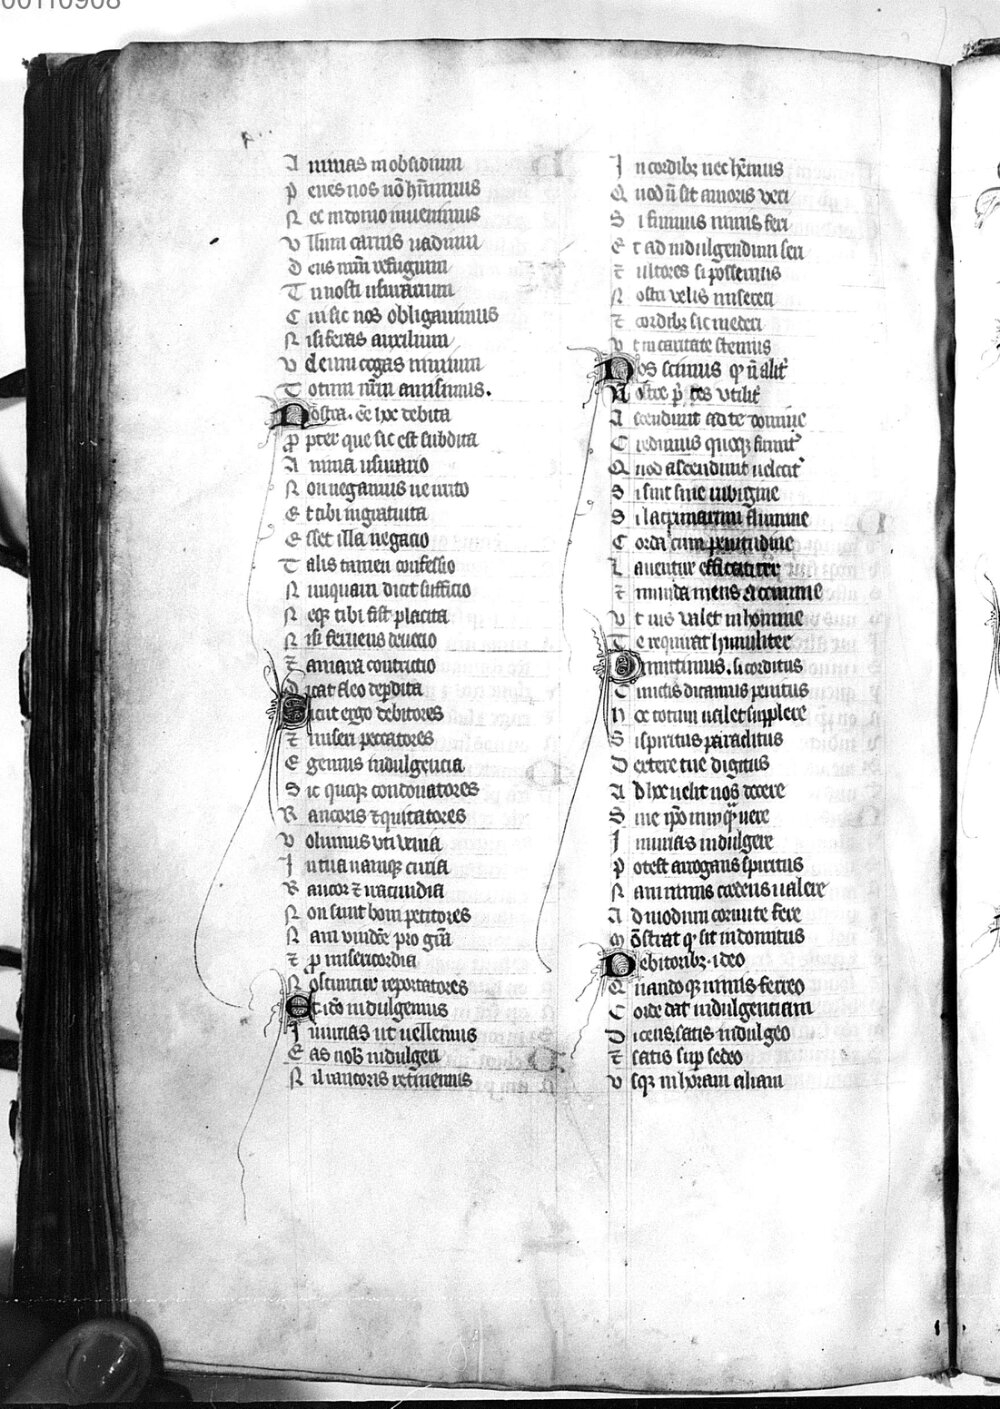 00110908
A nimas in obsidium
P enes nos nō hn̄imus
N ec in domo inuenimus
V llum carnis uadium
D eus nr̄m refugium
T u nosti usurarium
C ui sic nos obligauimus
N isi feras auxilium
V de cui cogas nimium
T otum nr̄m amisimus.
N ostra. ēē hec debita
P pter que sic est subdita
A nima usurario
N on negamus ne iurato
E t tibi ingratuita
E sset illa negatio
T alis tamen confessio
N unquam dicit sufficio
N eqꝫ tibi fist placita
N isi feruens deuotio
⁊ amara contritio
D icat fleo deꝑdita
S icut ergo debitores
⁊ miseri peccatores
E gemus indulgentia
S ic quoqꝫ condonatores
R ancoris ⁊ quitatores
V olumus uti uenia
I n tua namqꝫ curia
R ancor ⁊ iracundia
N on sunt boni petitores
N am uindcē pro grā
⁊ ꝑ misericordia
N oscuntur reportatores
E t ideo indulgemus
I niurias ut uellemus
E as nob indulgeri
N il rancoris retinemus
I n cordibꝫ nec hēmus
Q uod n̄ sit amoris ueri
S i fuimus nimis feri
E t ad indulgendum seri
⁊ ultores si possemus
N ostri uelis misereri
⁊ cordibꝫ sic mederi
V t in caritate stemus
N os scimus qꝫ n̄ alit
N ostre p̄ces utilit
A scendunt ad te domine
C redimus quoqꝫ firmit
Q uod ascendunt uelocit
S i sint sine rubigine
S i lacrimarum flumine
C orda cum penitudine
L auentur efficaciter
⁊ munda mens a crimine
V t ius ualet in homine
T e requirat humiliter
D imittimus. si corditus
C unctis dicamus penitus
N ec totum ualet supplere
S i spiritus paraclitus
D extere tue digitus
A d hec uelit nos docere
S ine ipō iniuꝗ̄ uere
I niurias indulgere
P otest arrogans spiritus
N am nimis credens ualere
A d modum cornute fere
M ōstrat qꝫ sit indomitus
D ebitoribꝫ. ideo
Q uandoqꝫ nimis ferreo
C orde dat indulgentiam
D icens. satis indulgeo
⁊ satis suꝑ sedeo
V sqꝫ in horam aliam